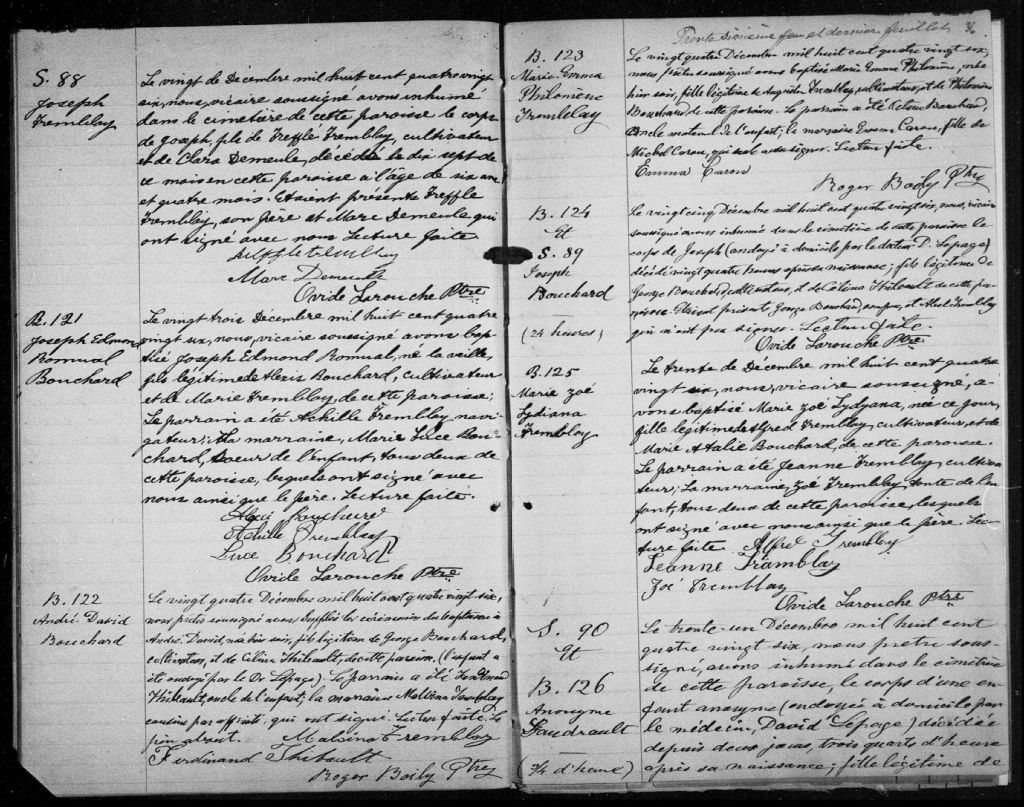 S. 88
Joseph
Tremblay
Le vingt de Décembre mil huit cent quatre vingt
six, nous, vicaire soussigné avons inhumé
dans le cimetière de cette paroisse le corps
de Joseph, fils de Treffle Tremblay, cultivateur
et de Clara Demeule, décédé le dix sept de
ce mois en cette paroisse à l'âge de six ans
et quatre mois. Etaient présents Treffle
Tremblay, son père et Marc Demeule qui
ont signé avec nous Lecture faite
Treffle Tremblay
Marc Demeule
Ovide Larouche Ptre
B. 121
Joseph Edmond
Romual
Bouchard
Le vingt trois Décembre mil huit cent quatre
vingt six, nous, vicaire soussigné avons bap-
tisé Joseph Edmond Romual, né la veille,
fils légitime de Alexis Bouchard, cultivateur
et de Marie Tremblay, de cette paroisse;
Le parrain a été Achille Tremblay navi-
gateur; La marraine, Marie Luce Bou-
chard, soeur de l'enfant, tous deux de
cette paroisse, lesquels ont signé avec
nous ainsi que le père. Lecture faite.
Achille Tremblay
Luce Bouchard
Ovide Larouche Ptre
B. 122
André David
Bouchard
Le vingt quatre Décembre mil huit cent quatre vingt six,
nous prêtre soussigné avons suppléé les cérémonies du baptême à
André David, né hier soir, fils légitime de George Bouchard,
cultivateur, et de Célina Thibault, de cette paroisse. (l'enfant a
été ondoyé par le Dr Lepage). Le parrain a été Ferdinand
Thibault, oncle de l'enfant; la marraine Malvina Tremblay
cousine par affinité, qui ont signé. Lecture faite. Le
père absent. Malvina Tremblay
Ferdinand Thibault
Roger Boily Ptre
Trente sixième feu et dernier feuillet 36
B. 123
Marie Emma
Philomène
Tremblay
Le vingt quatre Décembre mil huit cent quatre vingt six,
nous, prêtre soussigné avons baptisé Marie Emma Philomène, née
hier soir, fille légitime de Tremblay, cultivateur, et de Philomène
Bouchard, de cette paroisse. Le parrain a été Bouchard,
oncle maternel de l'enfant; la marraine Emma Caron, fille de
Michel Caron, qui seule a su signer. Lecture faite.
Emma Caron
Roger Boily Ptre
B. 124
Et
S. 89
Joseph
Bouchard
(24 heures)
Le vingt cinq Décembre mil huit cent quatre vingt six, nous, vicaire
soussigné avons inhumé dans le cimetière de cette paroisse le
corps de Joseph (ondoyé à domicile par le docteur D. Lepage)
décédé vingt quatre heures après sa naissance; fils légitime de
George Bouchard, cultivateur, et de Célina Thibault de cette pa-
roisse. Etaient présents George Bouchard, son père, et Abel Tremblay
qui n'ont pas signé. Lecture faite.
Ovide Larouche Ptre
B. 125
Marie Zoé
Lydiana
Tremblay
Le trente de Décembre mil huit cent quatre
vingt six, nous, vicaire soussigné, a-
vons baptisé Marie Zoé Lydyana, née ce jour,
fille légitime de Alfred Tremblay, cultivateur, et de
Marie Atalie Bouchard, de cette paroisse.
Le parrain a été Jeanne Tremblay, cultiva-
teur; La marraine, Zoé Tremblay, tante de l'en-
fant, tous deux de cette paroisse, lesquels
ont signé avec nous ainsi que le père. Lec-
ture faite. Alfred Tremblay
Jeanne Tramblay
Zoé Tremblay
Ovide Larouche Ptre
S. 90
Et
B. 126
Anonyme
Gaudrault
(3/4 d'heure)
Le trente-un Décembre mil huit cent
quatre vingt six, nous prêtre sous-
signé, avons inhumé dans le cimetière
de cette paroisse, le corps d'une en-
fant anonyme (ondoyée à domicile par
le médecin, David Lepage) décédée
depuis deux jours, trois quarts d'heure
après sa naissance; fille légitime de